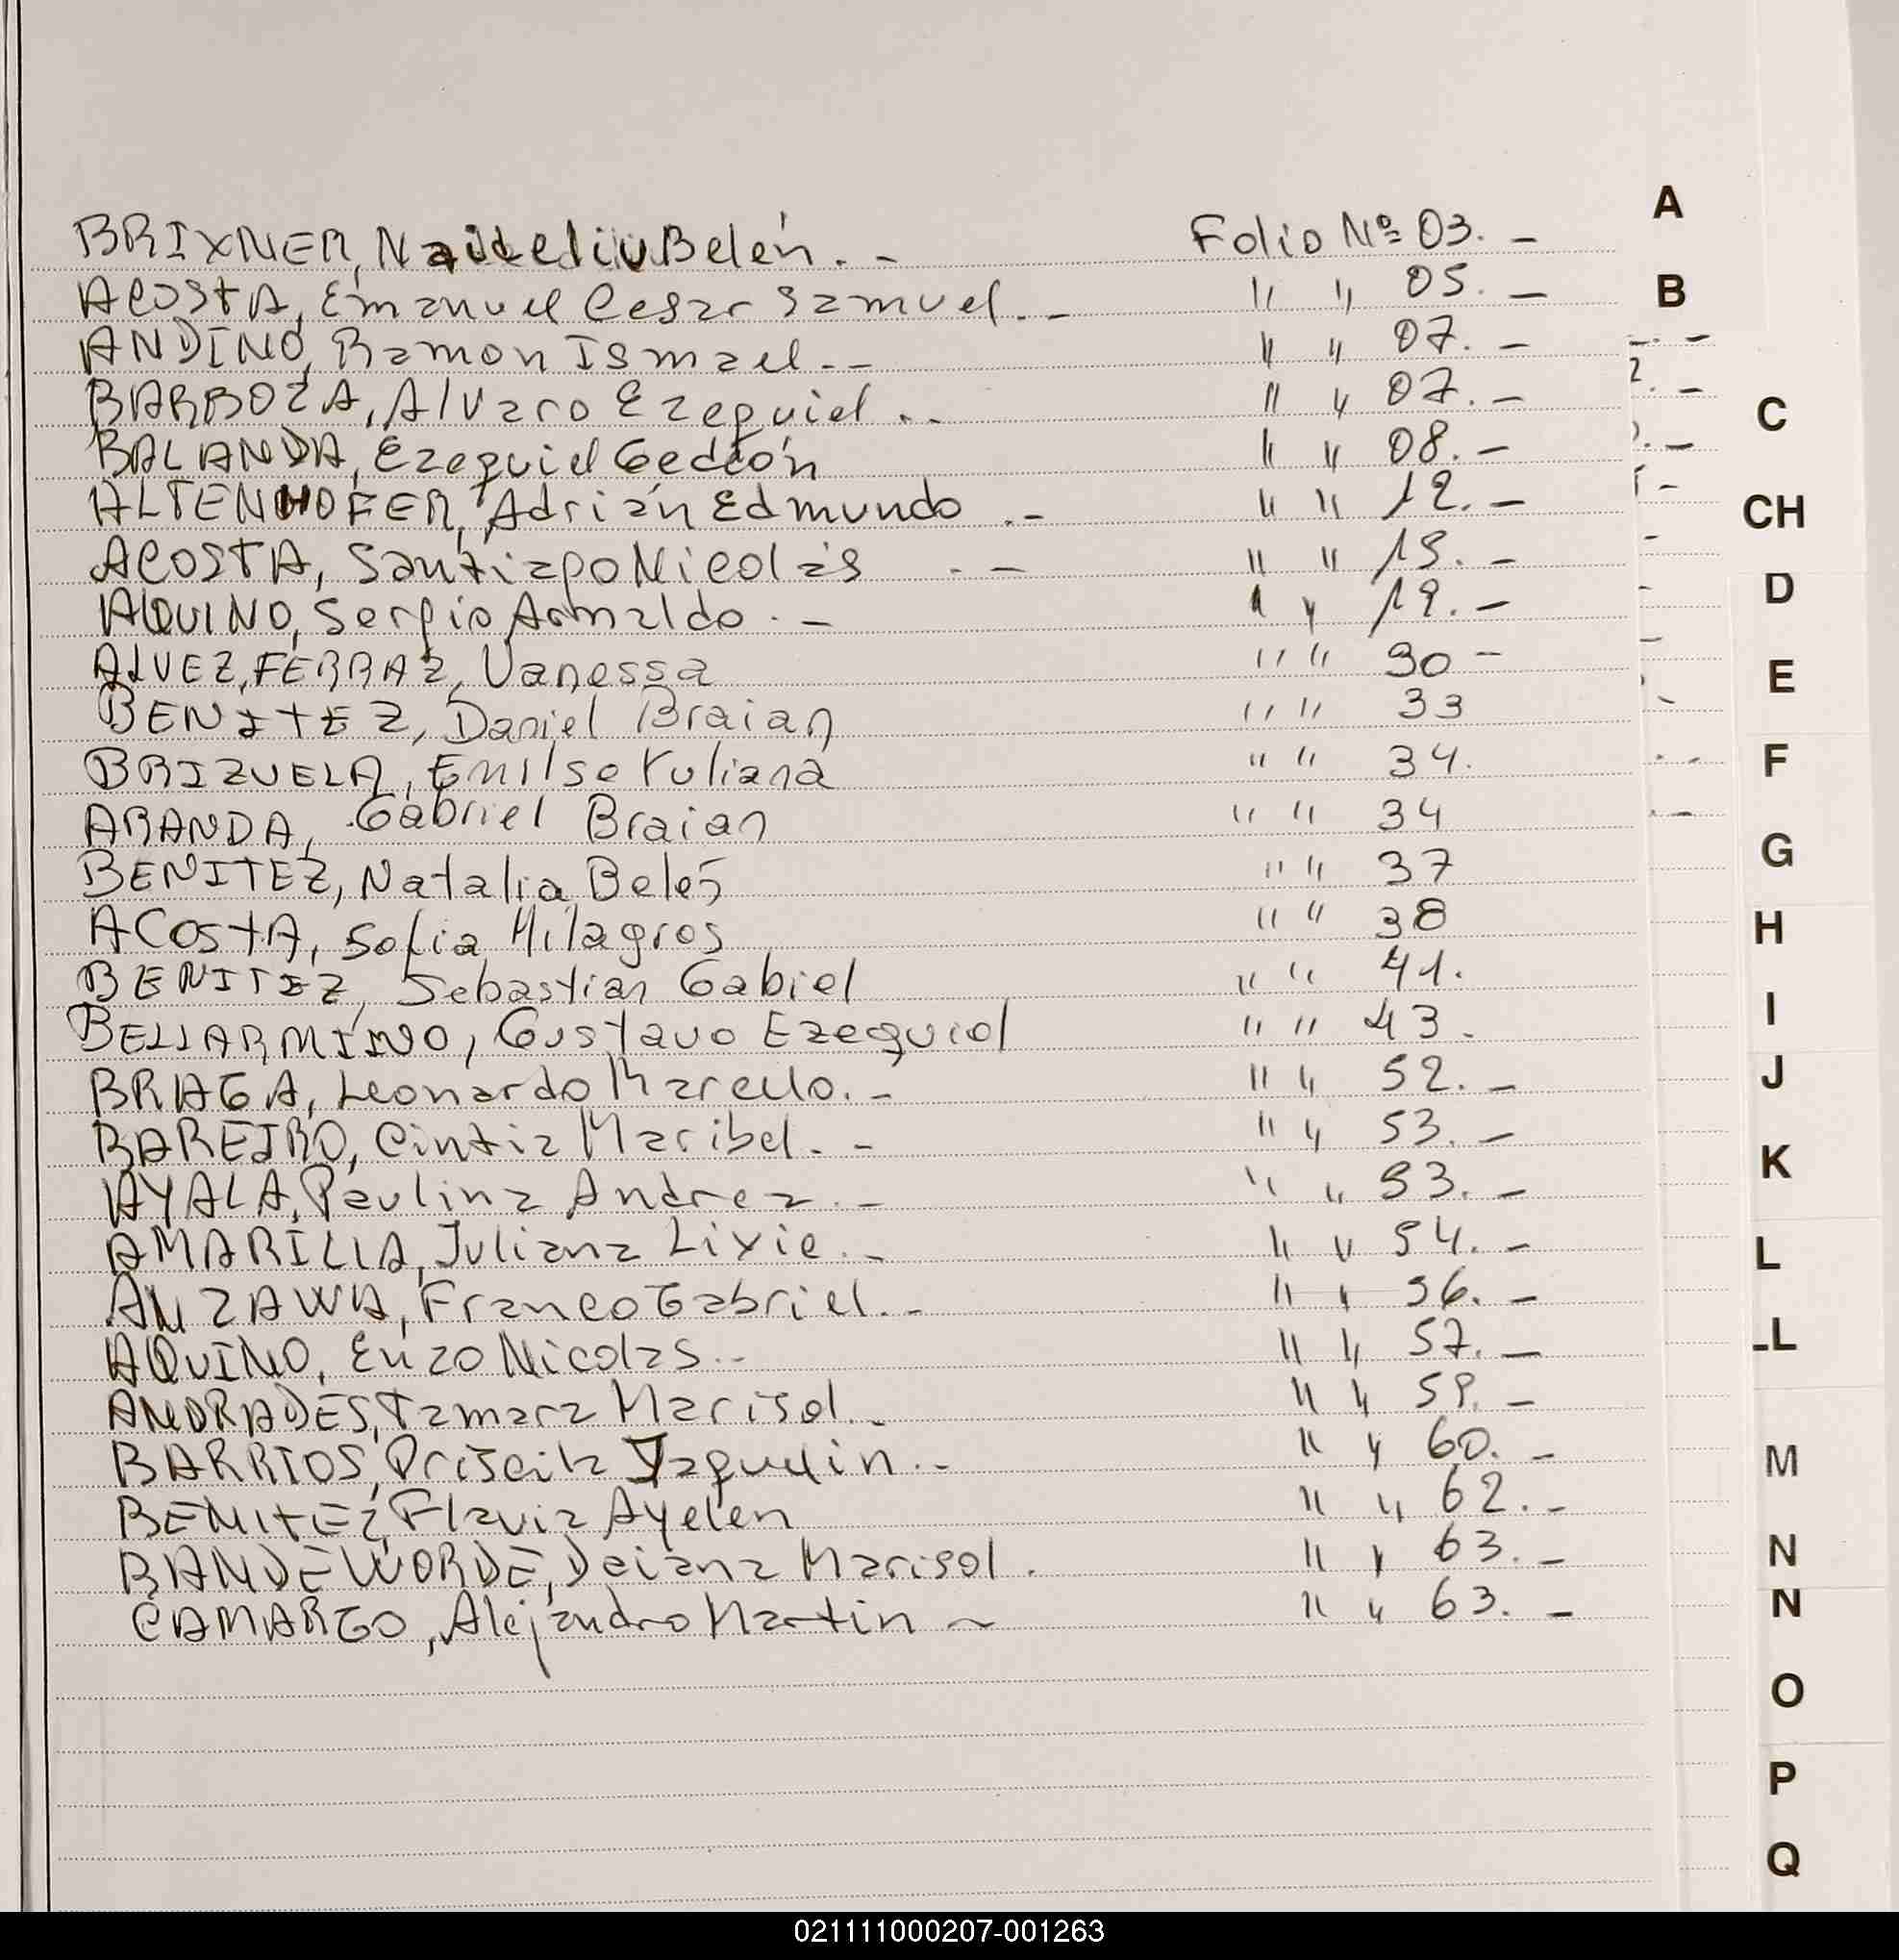 BRIXNER, Belén. - Folio Nº 03. -
ACOSTA, Emanuel Cesar Samuel. - " " 05. -
ANDINO, Ramon Ismael. - " " 07. -
BARBOZA, Alvaro Ezequiel. - " " 07. -
BALANDA, Ezequiel Gedeón " " 08. -
ALTENHOFER, Adrián Edmundo . - " " 12. -
ACOSTA, Santiago Nicolás . - " " 15. -
AQUINO, Sergio Arnaldo. - " " 19. -
ALVEZ, FERRAZ, Vanessa " " 30 -
BENITEZ, Daniel Braian " " 33
BRIZUELA, Emilse Yuliana " " 34.
ARANDA, Gabriel Braian " " 34
BENITEZ, Natalia Belén " " 37
ACOSTA, Sofia Milagros " " 38
BENITEZ, Sebastian Gabiel " " 41.
BELLARMINO, Gustavo Ezequiel " " 43.
BRAGA, Leonardo Marcelo. - " " 52. -
BAREIRO, Cintia Maribel. - " " 53. -
AYALA, Paulina Andrea. - " " 53. -
AMARILLA, Juliana Lixie. - " " 54. -
ANZAWA, Franco Gabriel. - " " 56. -
AQUINO, Enzo Nicolas. - " " 57. -
ANDRADES, Tamara Marisol. - " " 59. -
BARRIOS, Priscila Jaquelin. - " " 60. -
BENITEZ, Flavia Ayelen " " 62. -
BANDEWORDE, Daiana Marisol. " " 63. -
CAMARGO, Alejandro Martin - " " 63. -
A
B
C
CH
D
E
F
G
H
I
J
K
L
LL
M
N
N
O
P
Q
021111000207-001263